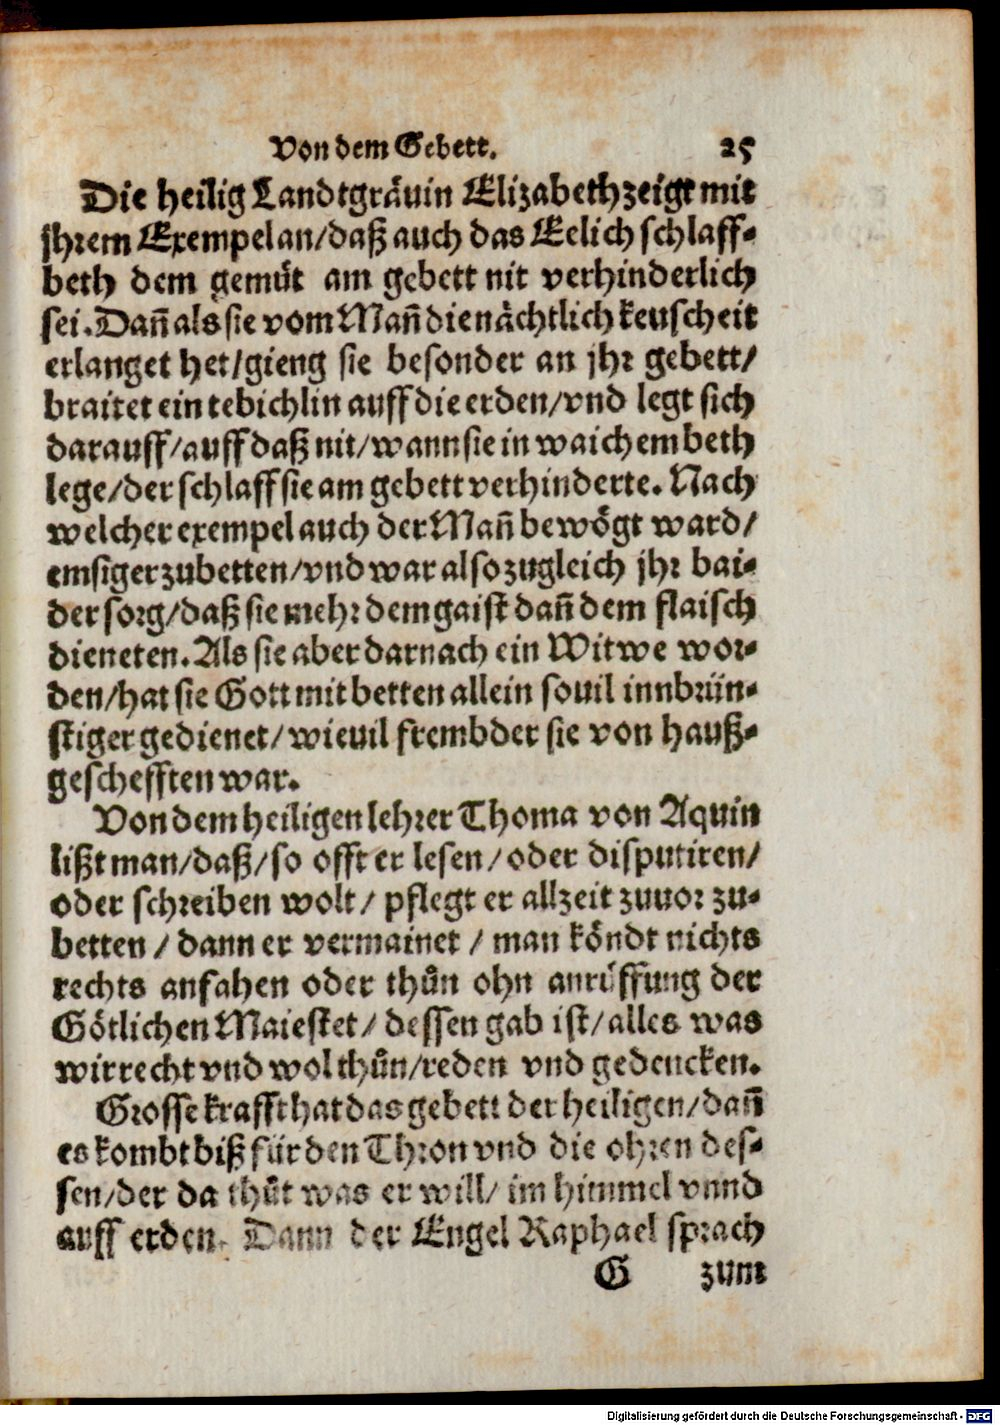 Von dem Gebett. 25
Die heilig Landtgräuin Elizabeth zeigt mit
jhrem Exempel an/daß auch das Eelich schlaff-
beth dem gemüt am gebett nit verhinderlich
sei. Dañ als sie vom Mañ die nächtlich keuscheit
erlanget het/gieng sie besonder an jhr gebett/
braitet ein tebichlin auff die erden/vnd legt sich
darauff/auff daß nit/wann sie in waichem beth
lege/der schlaff sie am gebett verhinderte. Nach
welcher exempel auch der Mañ bewögt ward/
emsiger zubetten/vnd war also zugleich jhr bai-
der sorg/daß sie mehr dem gaist dañ dem flaisch
dieneten. Als sie aber darnach ein Witwe wor-
den/hat sie Gott mit betten allein souil innbrün-
stiger gedienet/wieuil frembder sie von hauß-
geschefften war.
Von dem heiligen lehrer Thoma von Aquin
lißt man/daß/so offt er lesen/oder disputiren/
oder schreiben wolt/ pflegt er allzeit zuuor zu-
betten/ dann er vermainet/ man köndt nichts
rechts anfahen oder thůn ohn anrůffung der
Götlichen Maiestet/ dessen gab ist/alles was
wir recht vnd wol thůn/reden vnd gedencken.
Grosse krafft hat das gebett der heiligen/dañ
es kombt biß für den Thron vnd die ohren des-
sen/der da thůt was er will/ im himmel vnnd
auff erden. Dann der Engel Raphael sprach
G zum
Digitalisierung gefördert durch die Deutsche Forschungsgemeinschaft - DFG